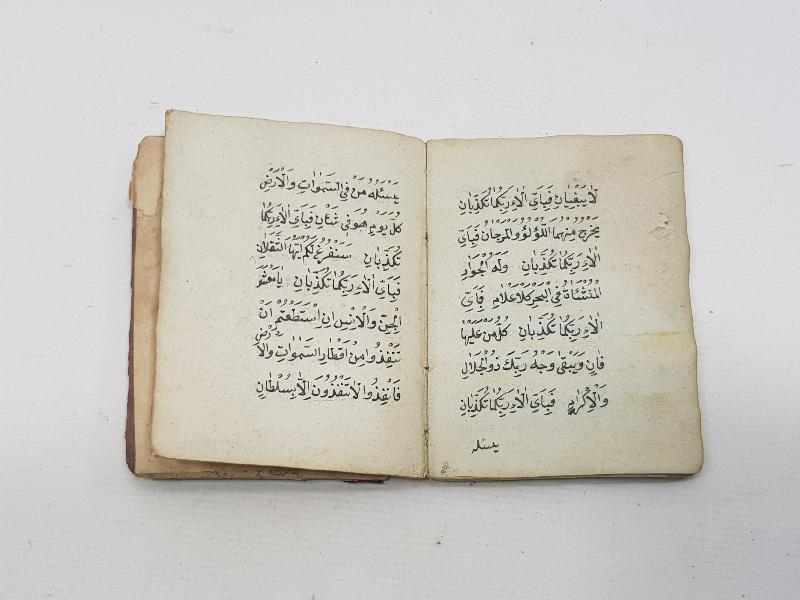 لَا يَبْغِيَانِ فَبِاَيِّ اٰلَاءِ رَبِّكُمَا تُكَذِّبَانِ
يَخْرُجُ مِنْهُمَا اللُّؤْلُؤُ وَالْمَرْجَانُ فَبِاَيِّ
اٰلَاءِ رَبِّكُمَا تُكَذِّبَانِ وَلَهُ الْجَوَارِ
الْمُنْشَئَاتُ فِي الْبَحْرِ كَالْاَعْلَامِ فَبِاَيِّ
اٰلَاءِ رَبِّكُمَا تُكَذِّبَانِ كُلُّ مَنْ عَلَيْهَا
فَانٍ وَيَبْقٰى وَجْهُ رَبِّكَ ذُو الْجَلَالِ
وَالْاِكْرَامِ فَبِاَيِّ اٰلَاءِ رَبِّكُمَا تُكَذِّبَانِ
يسئله
يَسْئَلُهُ مَنْ فِي السَّمٰوَاتِ وَالْاَرْضِ
كُلَّ يَوْمٍ هُوَ فِي شَئَانٍ فَبِاَيِّ اٰلَاءِ رَبِّكُمَا
تُكَذِّبَانِ سَنَفْرُغُ لَكُمْ اَيُّهَا الثَّقَلَانِ
فَبِاَيِّ اٰلَاءِ رَبِّكُمَا تُكَذِّبَانِ يَامَعْشَرَ
الْجِنِّ وَالْاِنْسِ اِنِ اسْتَطَعْتُمْ اَنْ
تَنْفُذُوا مِنْ اَقْطَارِ السَّمٰوَاتِ وَالْاَرْضِ
فَانْفُذُوا لَا تَنْفُذُونَ اِلَّا بِسُلْطَانٍ